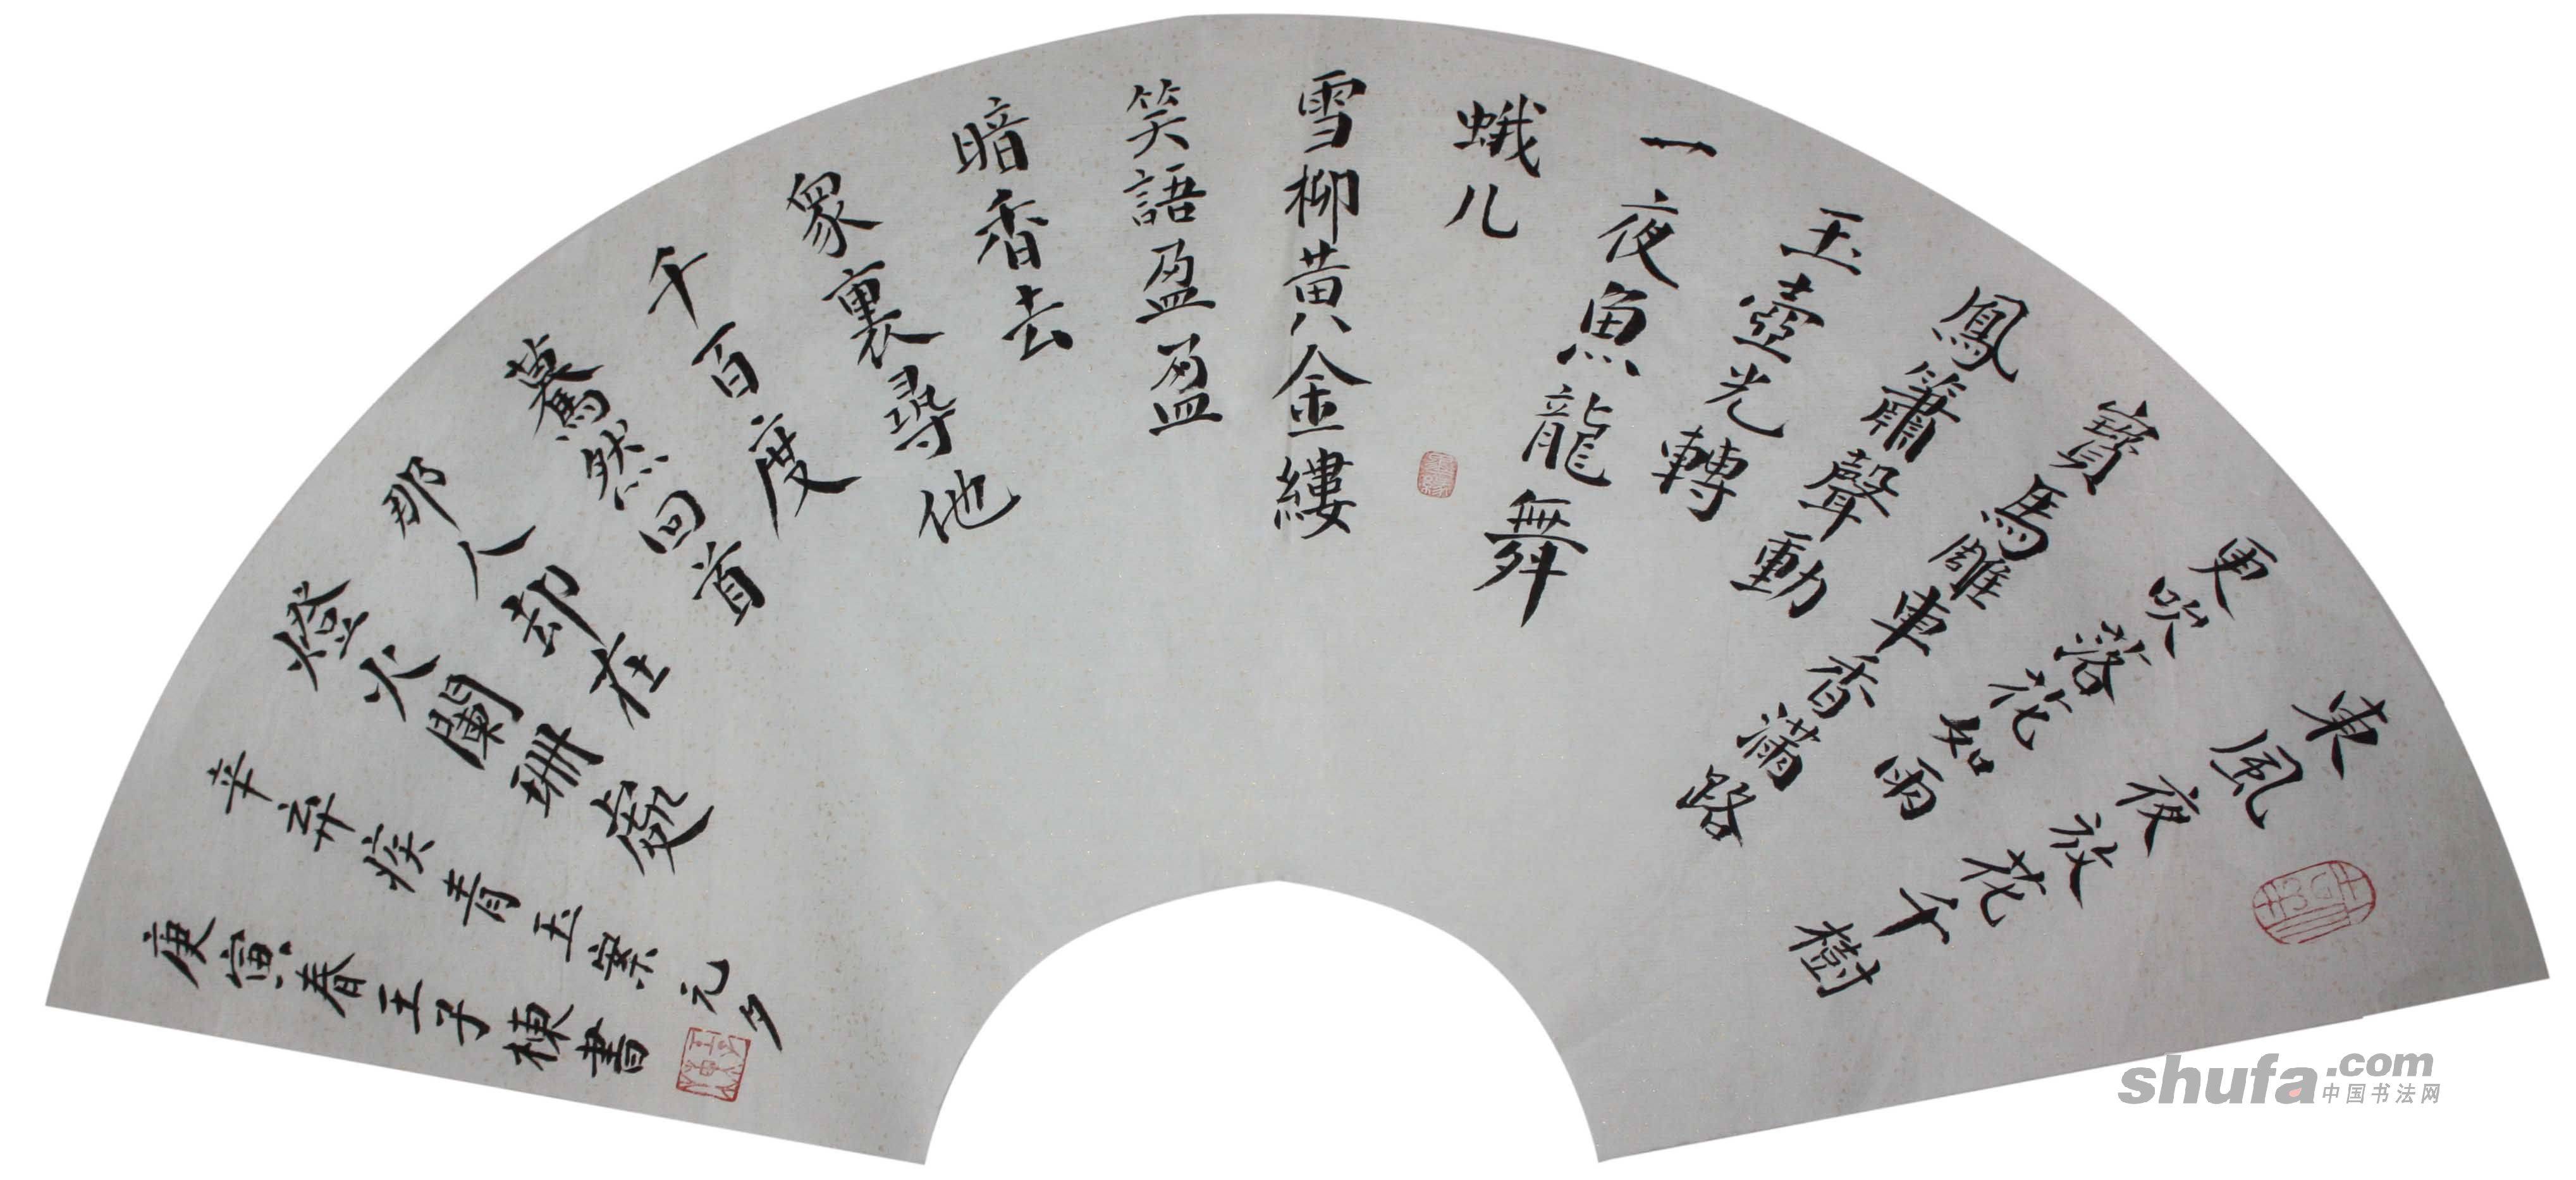 東風夜放花千樹
更吹落花如雨
寶馬雕車香滿路
鳳簫聲動
玉壺光轉
一夜魚龍舞
蛾儿
雪柳黄金縷
笑語盈盈
暗香去
衆裏尋他
千百度
驀然回首
那人却在
燈火闌珊處
辛弃疾青玉案元夕
庚寅春王子棟書
shufa.com
中国书法网